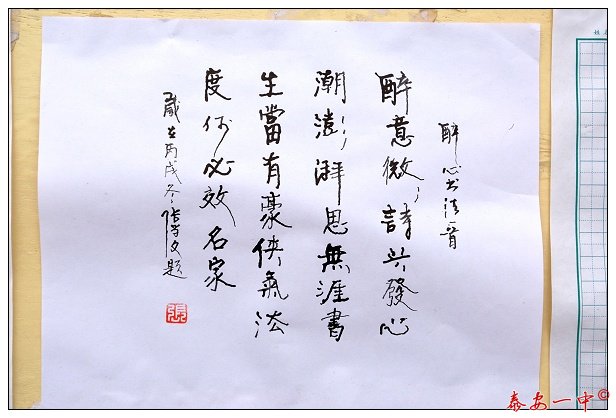 醉心书法一首
醉意微々詩兴發心
潮澎湃思無涯書
生當有豪俠氣法
度何必效名家
歲在丙戌冬文題
張
姓
泰安一中©